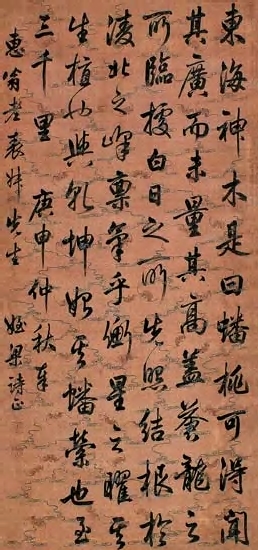 東海神木是曰蟠桃可得聞
其廣而未量其高蓋蒼龍之
所臨據白日之所先照結根於
淩北之峰稟氣乎衡星之曜
生植而與乾坤始其蟠縈也至
三千里 庚申仲秋奉
惠翁老表妹先生 姪梁詩正